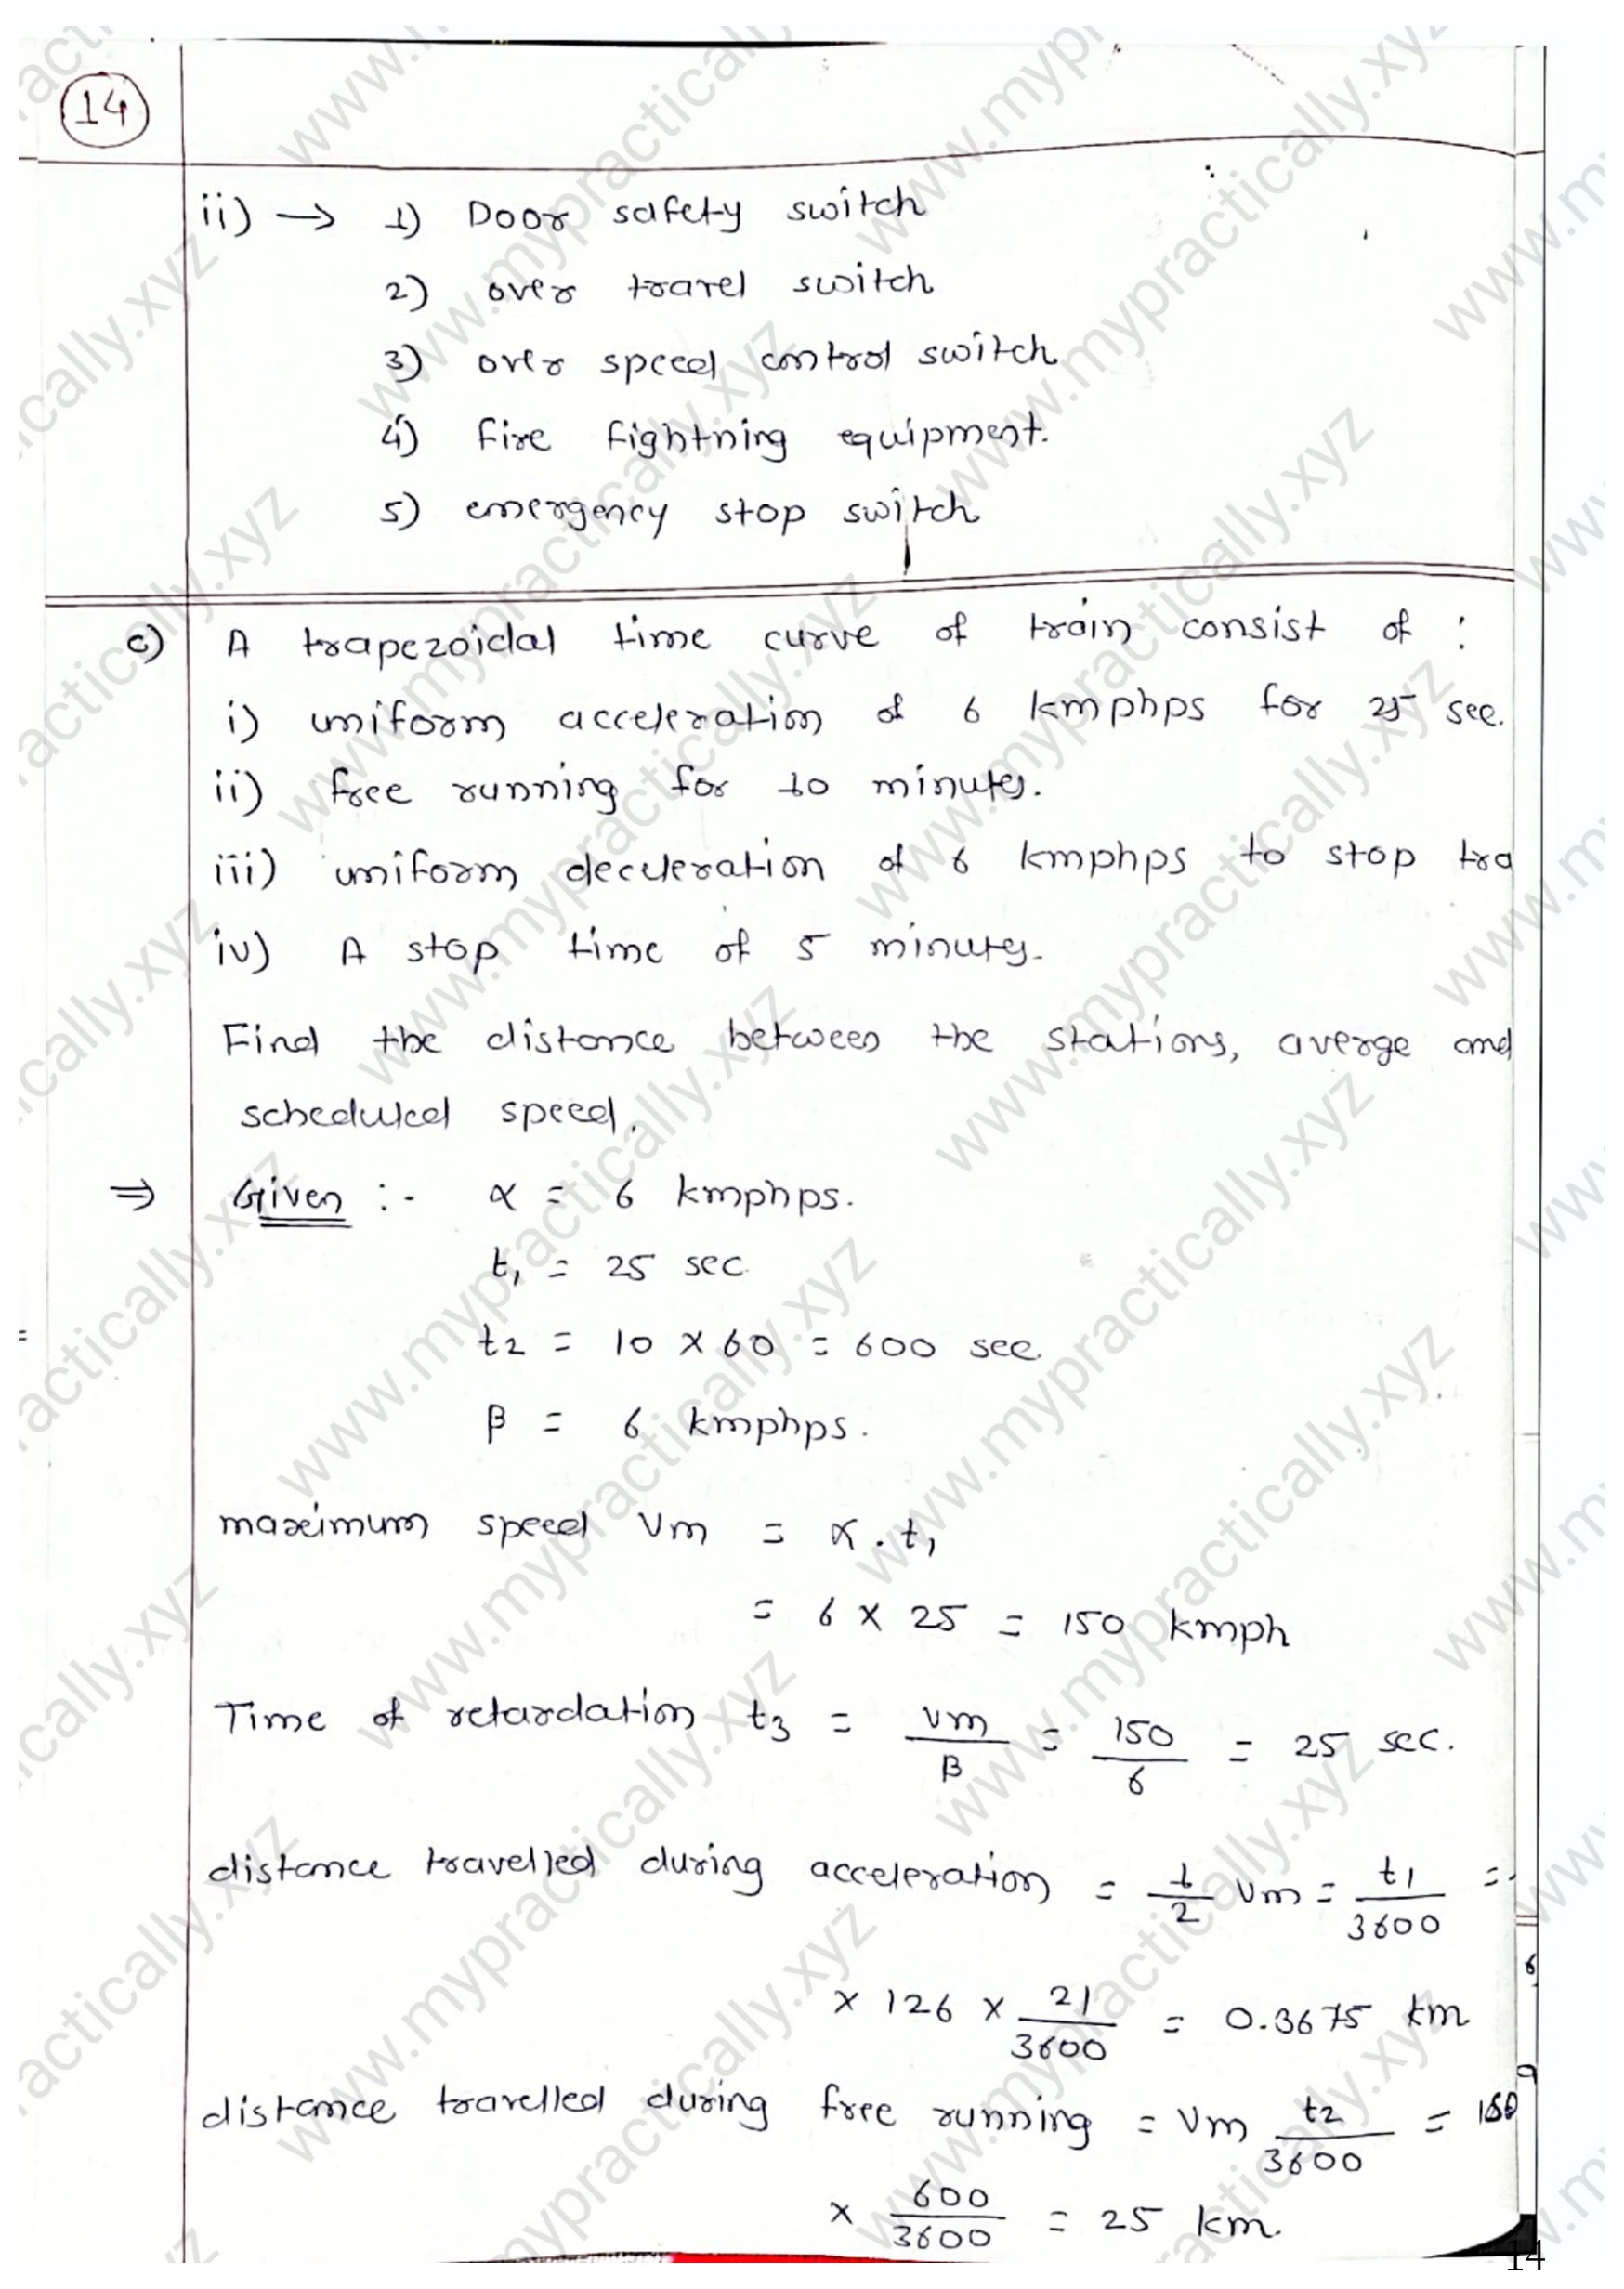 14
ii) → 1) Door safety switch
2) over travel switch
3) over speed control switch
4) fire fightning equipment.
5) emergency stop switch
c) A trapezoidal time curve of train consist of :
i) uniform acceleration of 6 kmphps for 25 sec.
ii) free running for 10 minutes.
iii) uniform deceleration of 6 kmphps to stop tra
iv) A stop time of 5 minutes.
Find the distance between the stations, averge and
scheduled speed.
⇒ Given :- α = 6 kmphps.
t₁ = 25 sec
t2 = 10 × 60 = 600 sec.
β = 6 kmphps.
maximum speed Vm = α . t₁
= 6 × 25 = 150 kmph
Time of retardation t3 = Vm / β = 150 / 6 = 25 sec.
distance travelled during acceleration = 1/2 Vm = t1 / 3600 =
× 126 × 21 / 3600 = 0.3675 km
distance travelled during free running = Vm t2 / 3600 = 150
× 600 / 3600 = 25 km.
14
www.mypractically.xyz